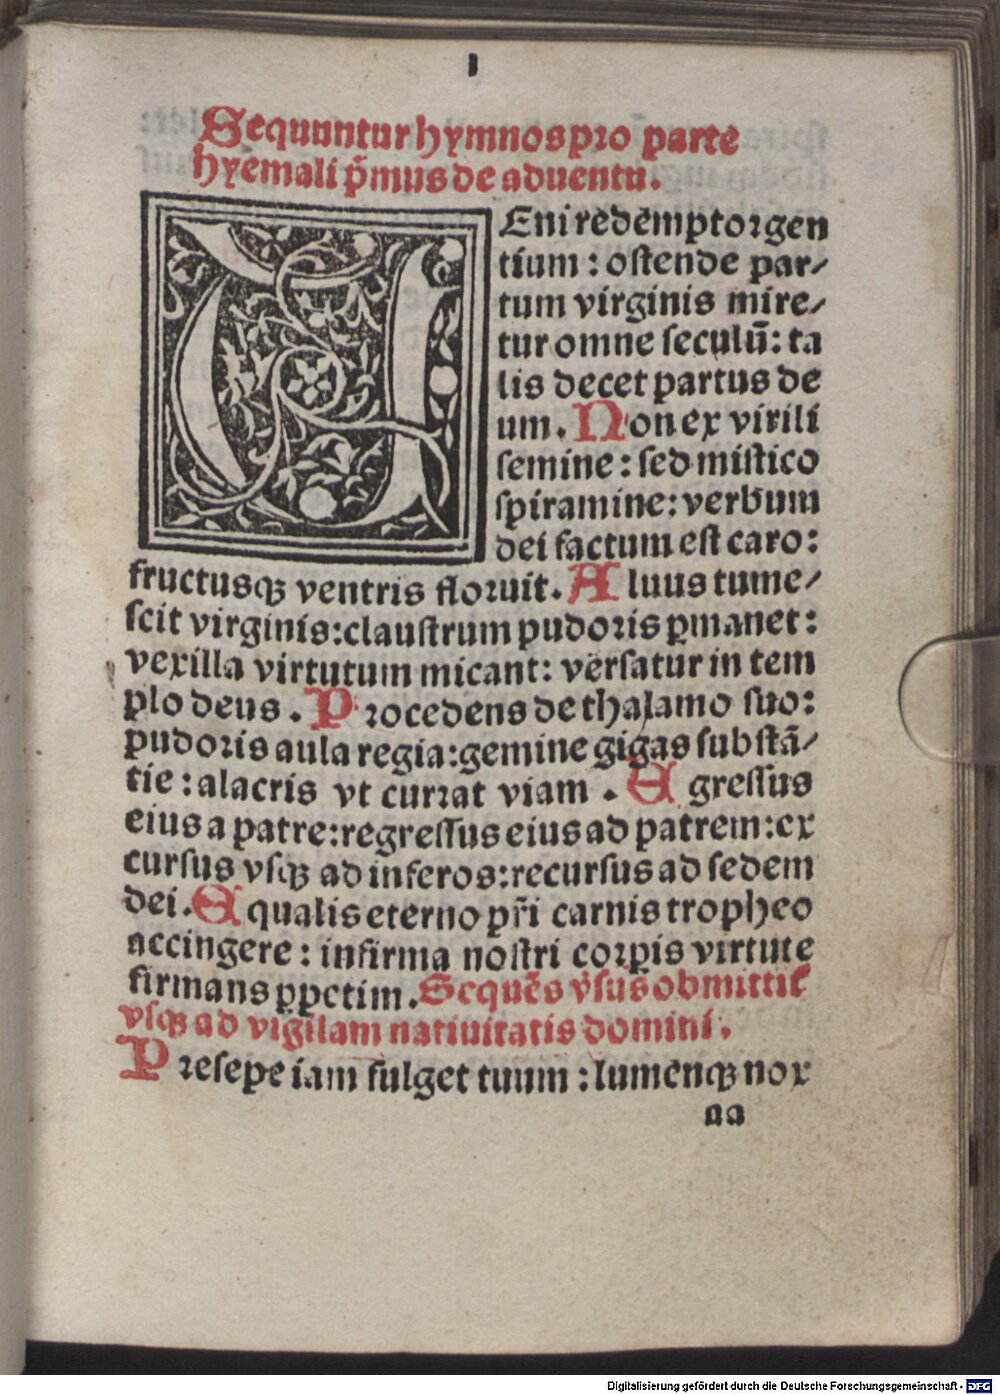 I
Sequuntur hymnos pro parte
hyemali p̄mus de aduentu.
VEni redemptor gen
tium : ostende par⸗
tum virginis mire⸗
tur omne seculū: ta
lis decet partus de
um. Non ex virili
semine : sed mistico
spiramine: verbum
dei factum est caro:
fructusqꝫ ventris floruit. Aluus tume⸗
scit virginis: claustrum pudoris ꝑmanet:
vexilla virtutum micant: versatur in tem
plo deus. Procedens de thalamo suo:
pudoris aula regia: gemine gigas substā⸗
tie : alacris vt currat viam . Egressus
eius a patre: regressus eius ad patrem: ex
cursus vsqꝫ ad inferos: recursus ad sedem
dei. Equalis eterno pr̄i carnis tropheo
accingere : infirma nostri corꝑis virtute
firmans ꝑpetim. Sequēs v̄sus obmittit̄
vsqꝫ ad vigilam natiuitatis domini.
Presepe iam fulget tuum : lumenqꝫ nox
aa
Digitalisierung gefördert durch die Deutsche Forschungsgemeinschaft - DFG